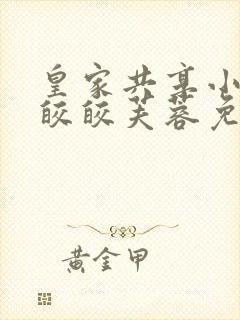 皇家共享小
皎皎芙蓉免
黄金甲